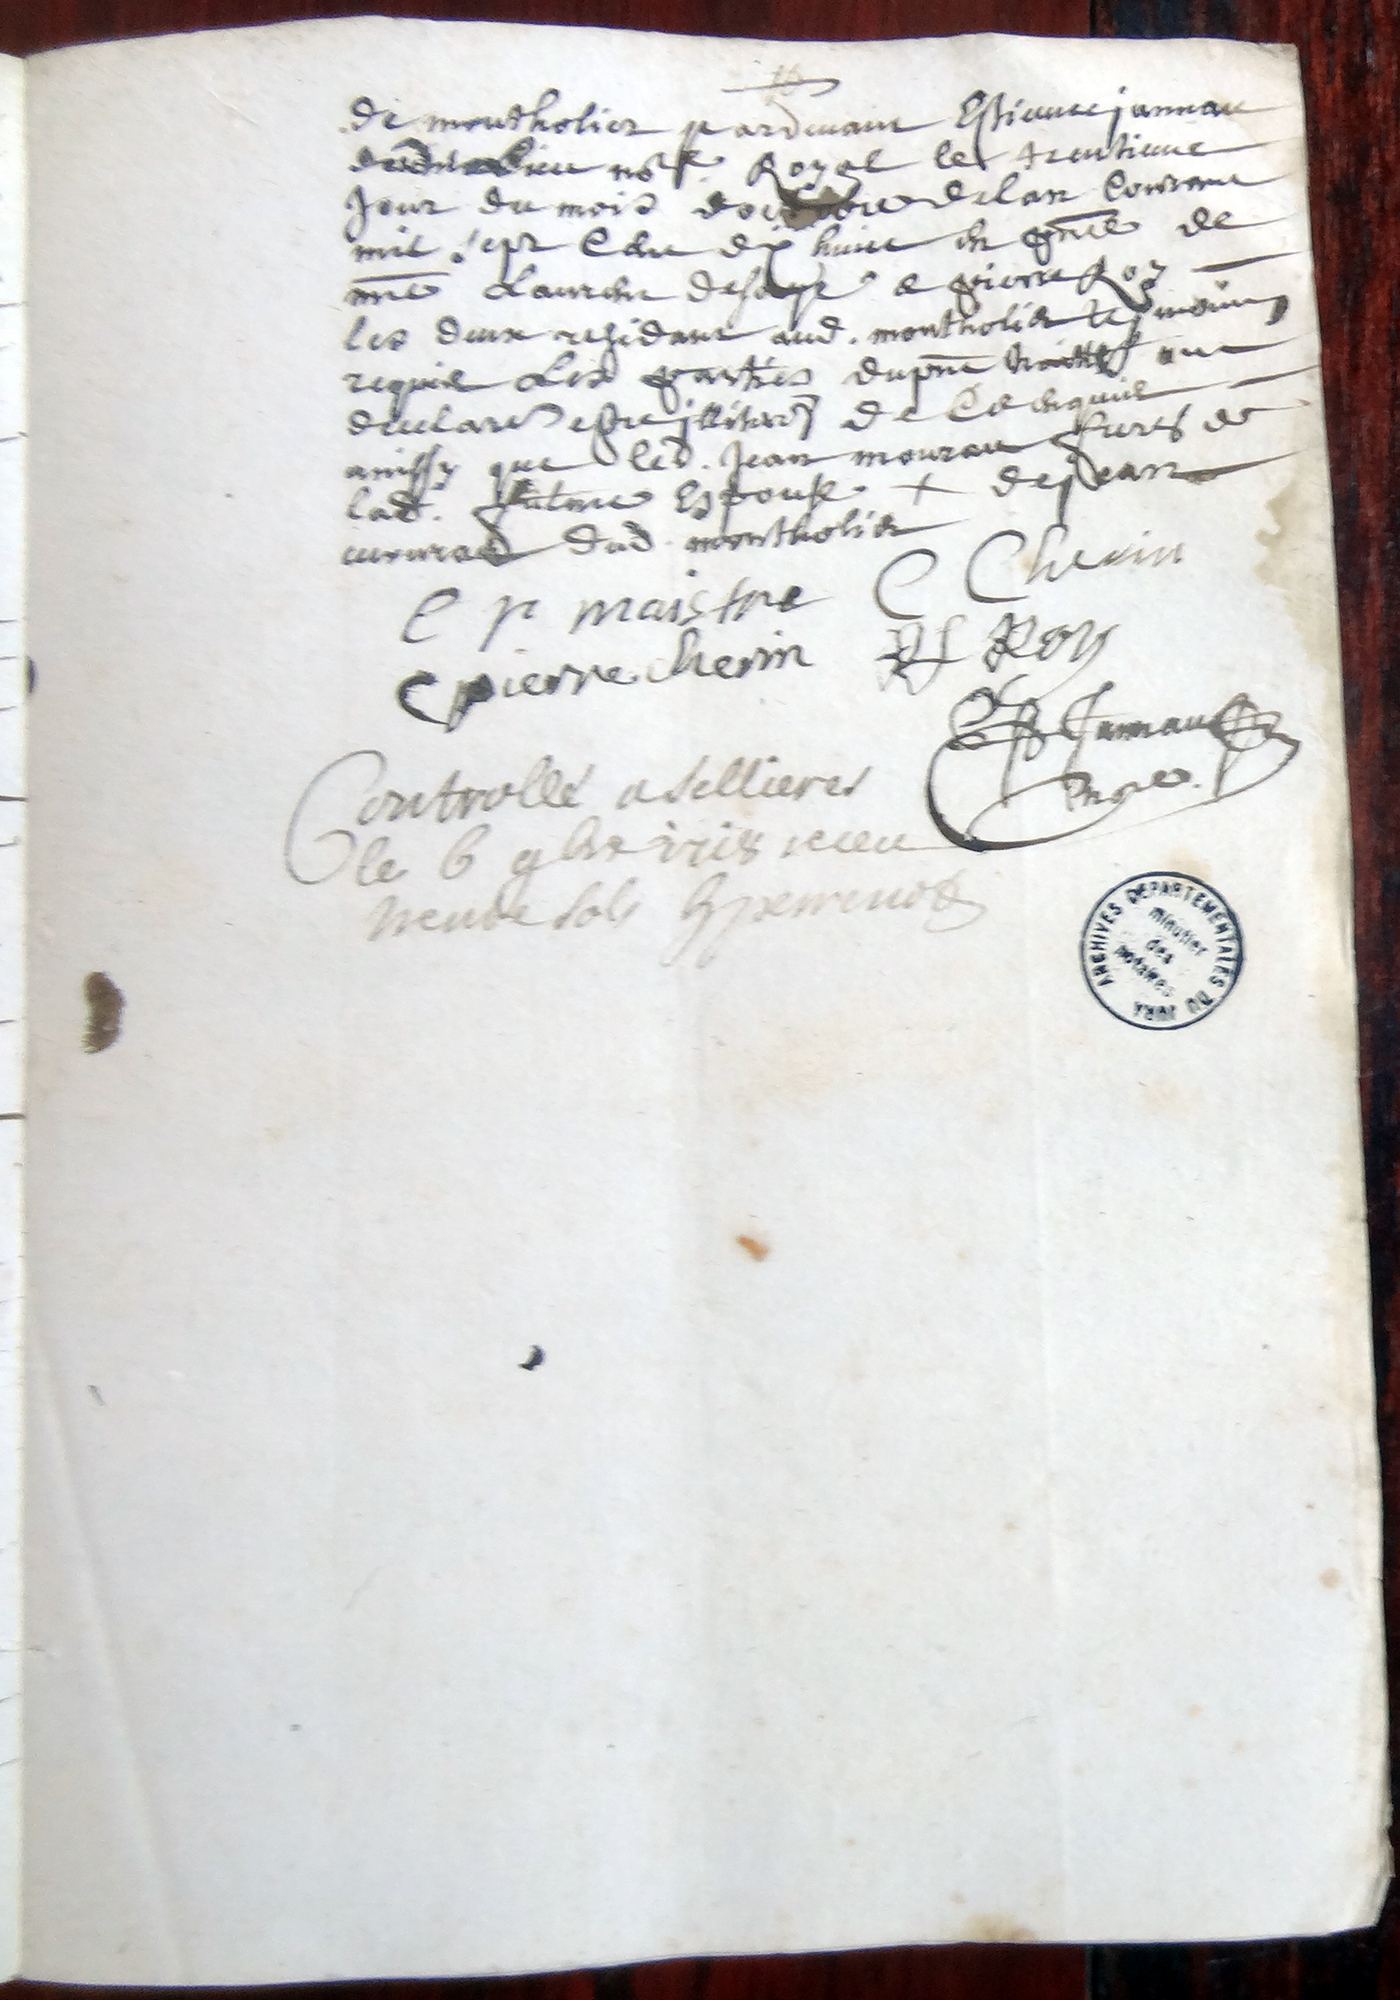 de montholier pardevant Estienne jannau
dud lieu nore Royal le trentieme
jour du mois doctobre de lan Courant
mil sept Cent dix huict en pnce de
me Laurent et pierre Roy
les deux residant aud. montholier tesmoins
requis Les parties du pnt traitté ont
declaré estre illiterés de Ce enquis
ainssy que led. Jean mourau freres de
lad. Espouse + de jean
mourau dud. montholier
C p maistre C Chevin
C pierre chevin P Roy
E Jannau
nore.
Controllé a sellieres
le 6 9bre 1718 receu
neuve sols
ARCHIVES DEPARTEMENTALES DU JURA
minutier
des
notaires